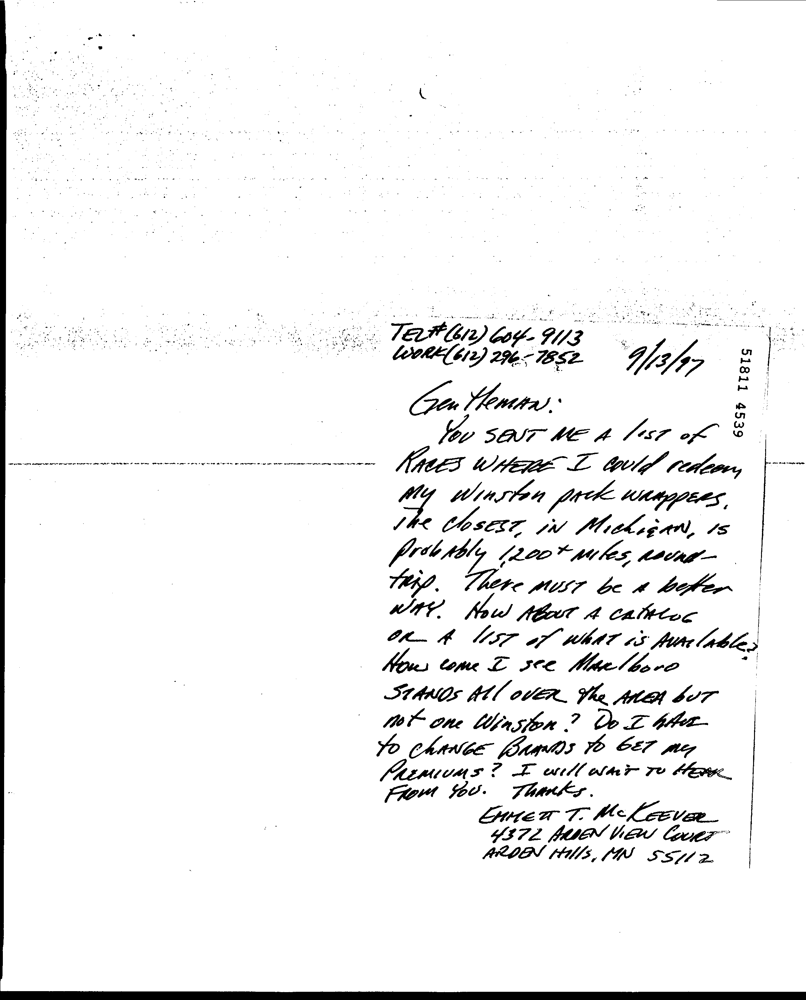 TEL# (612) 604-9113
WORK (612) 296-7852
9/13/97
Gentleman:
You SENT ME A list of
RACES WHERE I could redeem
my Winston pack wrappers.
The closest, in Michigan, is
probably 1,200+ miles, round-
trip. There must be a better
WAY. How About A CATALOG
OR A list of what is Available?
How come I see Marlboro
STANDS All OVER the AREA but
not one Winston? Do I have
to CHANGE BRANDS to GET my
PREMIUMS? I will wait to HEAR
FROM You. Thanks.
EMMETT T. McKEEVER
4372 ARDEN VIEW COURT
ARDEN Hills, MN 55112
51811 4539